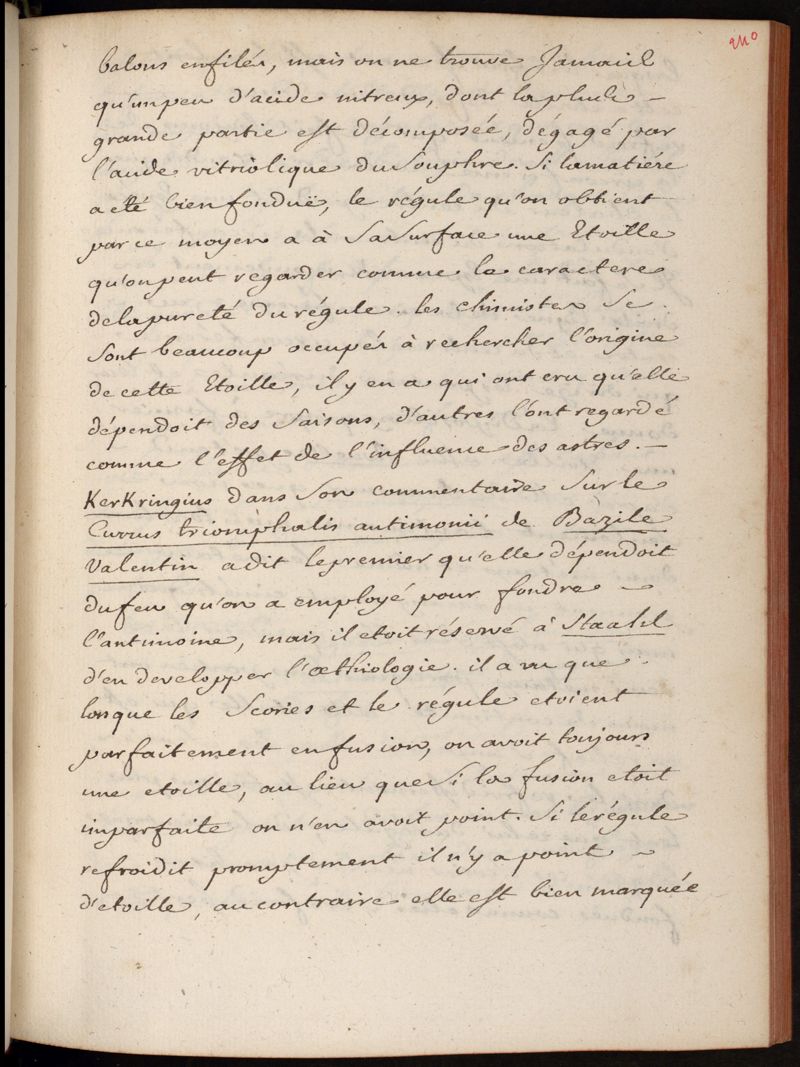 240
balons enfilés, mais on ne trouve Jamais
qu'un peu d'acide nitreux, dont la plus
grande partie est décomposée, dégagé par
l'acide vitriolique du Souphre. Si la matiére
a eté bien fonduë, le régule qu'on obtient
par ce moyen a à Sa Surface une Etoille
qu'on peut regarder comme le caractere
de la pureté du régule. les chimistes Se
Sont beaucoup occupés à rechercher l'origine
de cette Etoille, il y en a qui ont cru qu'elle
dépendoit des Saisons, d'autres l'ont regardé
comme l'effet de l'influence des astres.
KerKringius dans Son commentaire Sur le
Currus triomphalis antimonii de Bazile
Valentin a dit le premier qu'elle dépendoit
du feu qu'on a employé pour fondre
l'antimoine, mais il etoit réservé à Staahl
d'en developper l'œthiologie. il a vu que
lorsque les Scories et le régule etoient
parfaitement en fusion, on avoit toujours
une etoille, au lieu que Si la fusion etoit
imparfaite on n'en avoit point. Si le régule
refroidit promptement il n'y a point
d'etoille, au contraire elle est bien marquée